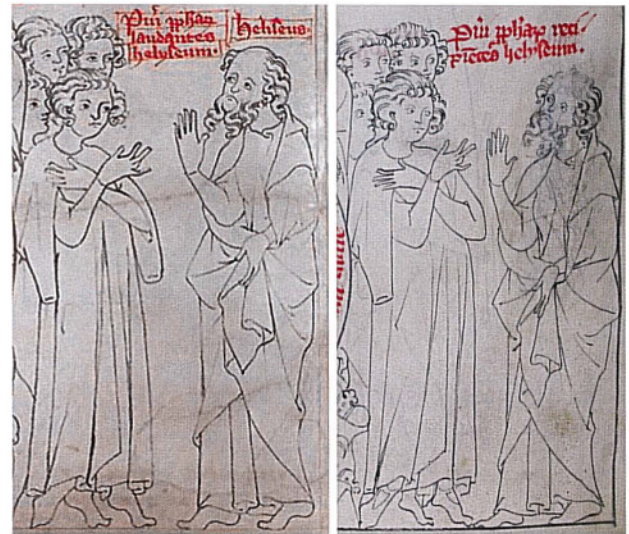 Pu̅i ꝓphaꝝ
laudantes
helyseum.
heliseus.
Pu̅i ꝓphaꝝ reci/
pie̅tes helyseum.